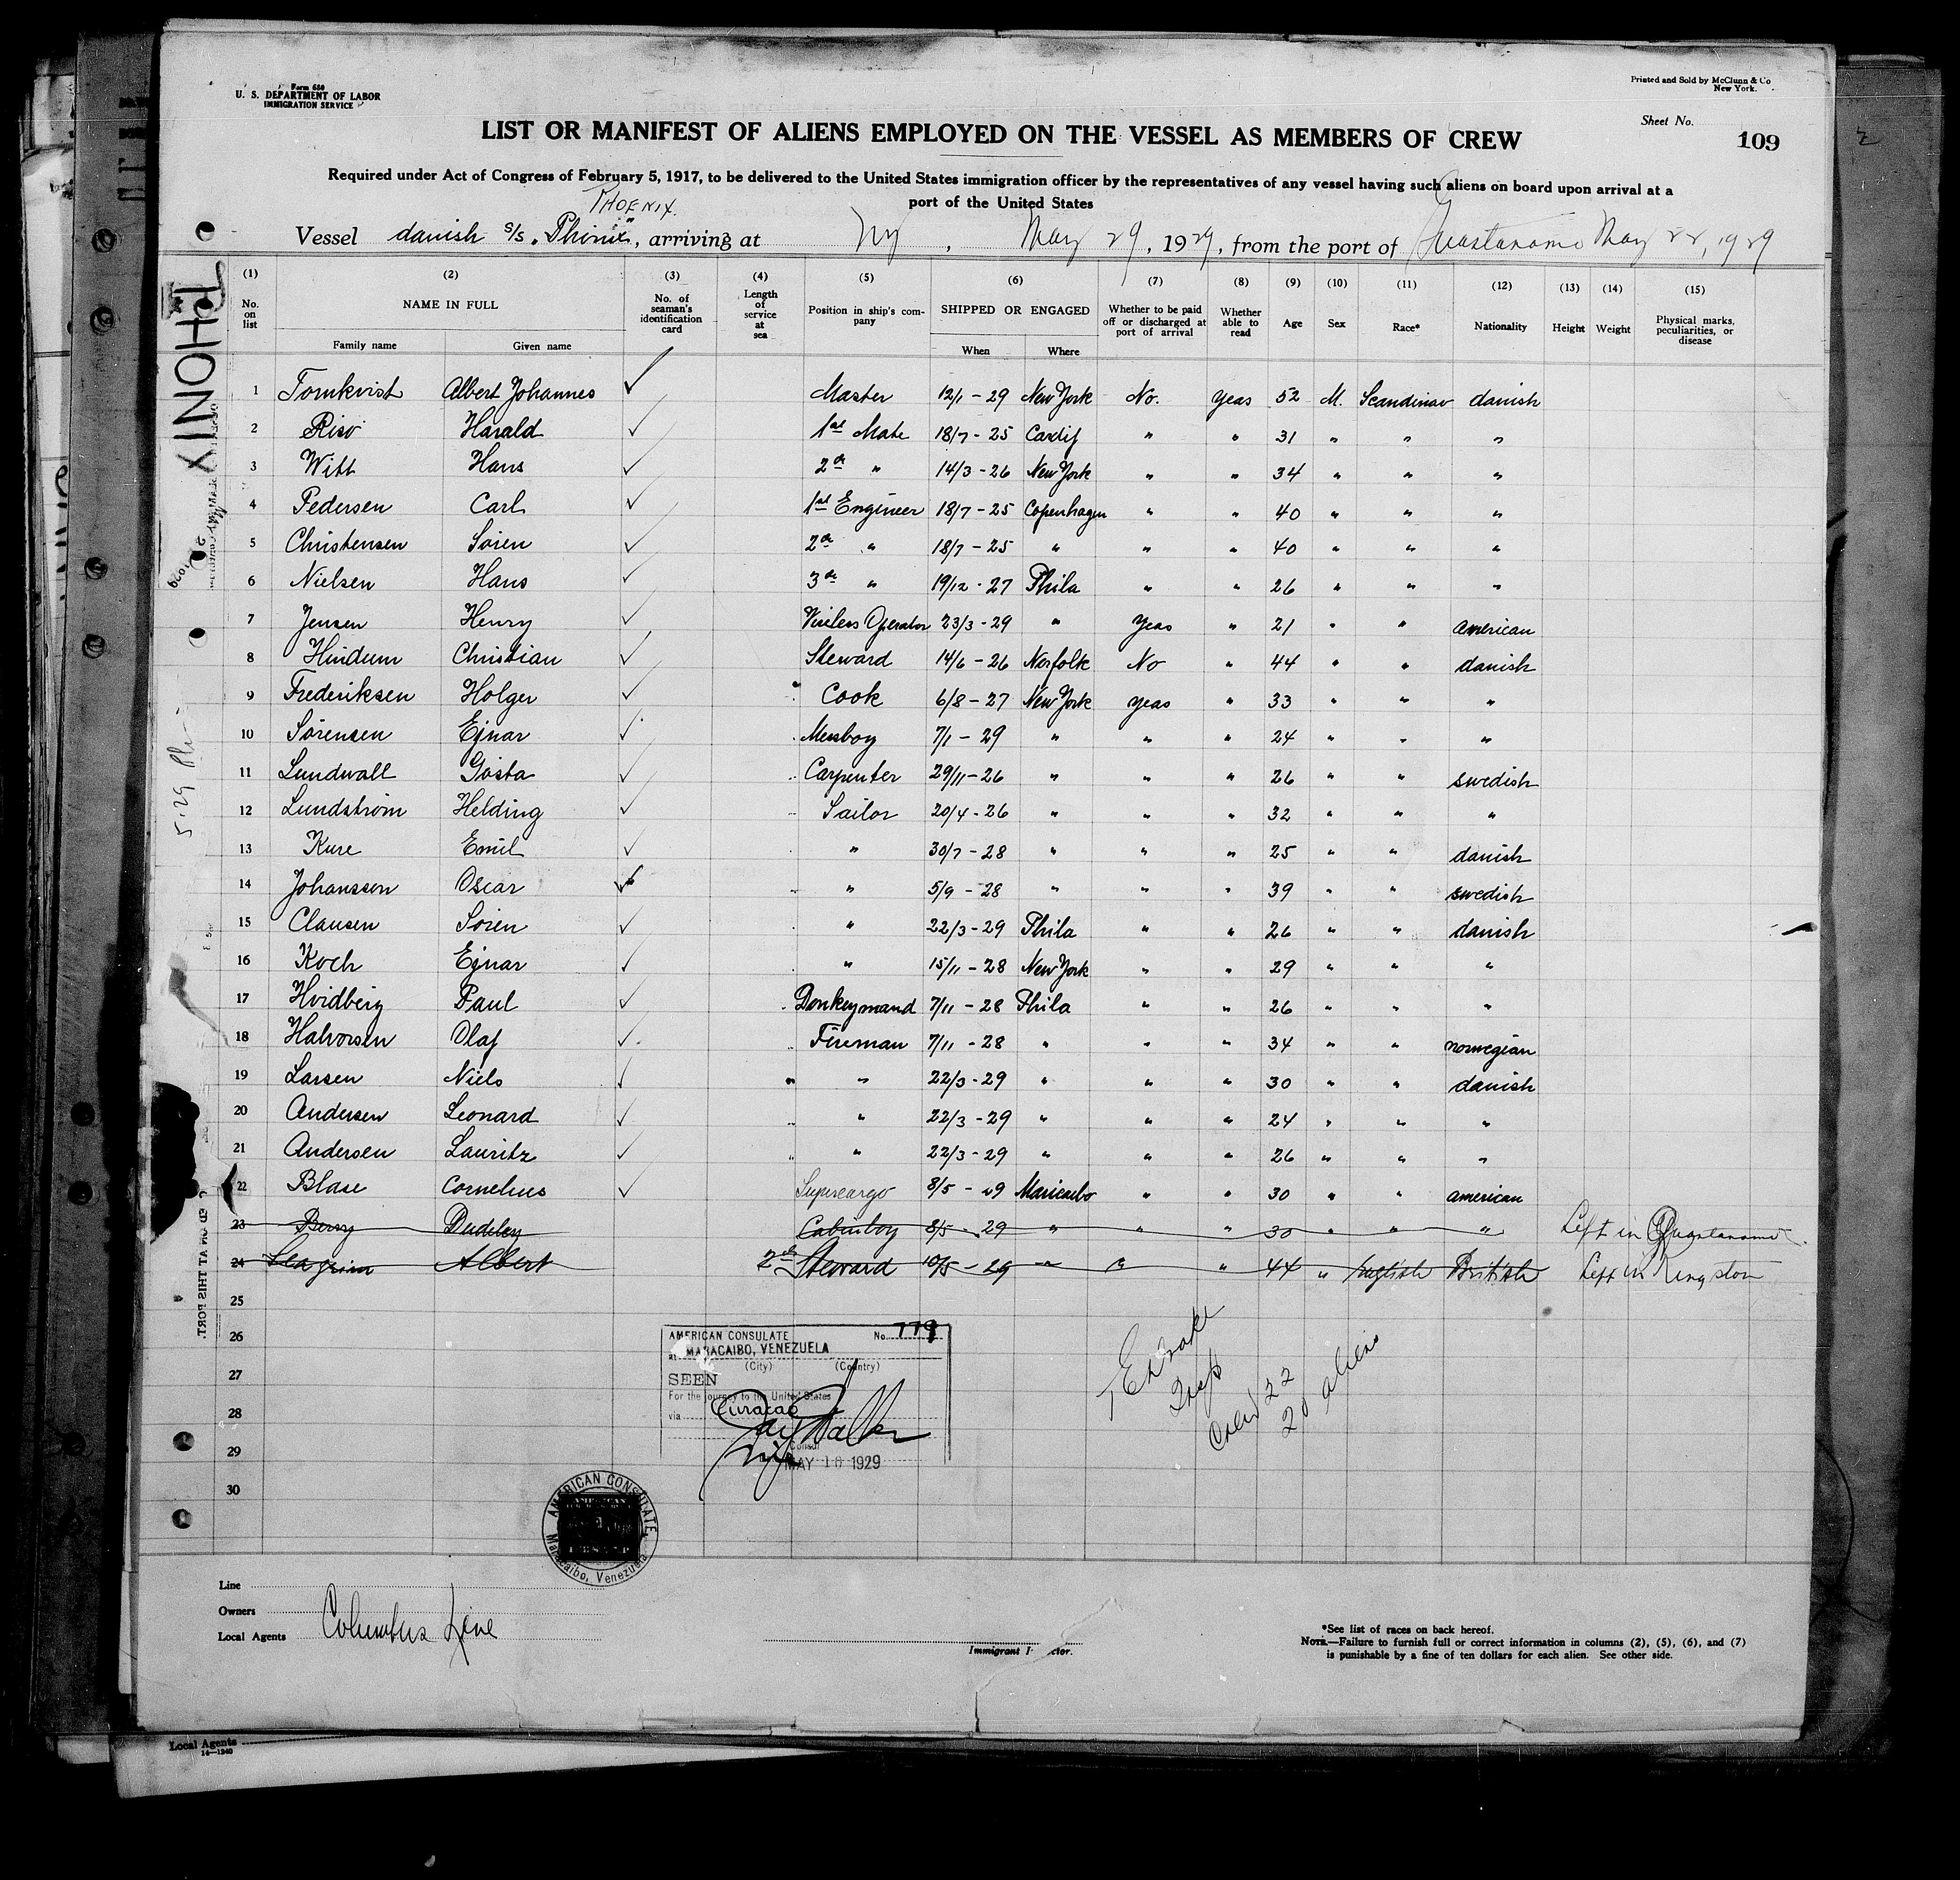 Form 680
U. S. DEPARTMENT OF LABOR
IMMIGRATION SERVICE
Printed and Sold by McClunn & Co
New York.
Sheet No.
109
LIST OR MANIFEST OF ALIENS EMPLOYED ON THE VESSEL AS MEMBERS OF CREW
Required under Act of Congress of February 5, 1917, to be delivered to the United States immigration officer by the representatives of any vessel having such aliens on board upon arrival at a
port of the United States
PHOENIX.
Vessel danish s/s. "Phönix", arriving at Ny, May 29, 1929, from the port of Guastanamo May 22, 1929
PHONIX
(1) (2) (3) (4) (5) (6) (7) (8) (9) (10) (11) (12) (13) (14) (15)
No. on list NAME IN FULL No. of seaman's identification card Length of service at sea Position in ship's company SHIPPED OR ENGAGED Whether to be paid off or discharged at port of arrival Whether able to read Age Sex Race* Nationality Height Weight Physical marks, peculiarities, or disease
Family name Given name When Where
1 Tornkvist Albert Johannes Master 12/1 - 29 New York No. Yeas 52 M. Scandinav danish
2 Risö Harald 1st Mate 18/7 - 25 Cardif " " 31 " " "
3 Witt Hans 2de " 14/3 - 26 New York " " 34 " " "
4 Pedersen Carl 1st Engineer 18/7 - 25 Copenhagen " " 40 " " "
5 Christensen Sören 2de " 18/7 - 25 " " " 40 " " "
6 Nielsen Hans 3de " 19/12 - 27 Phila " " 26 " " "
7 Jensen Henry Vireless Operator 23/3 - 29 " Yeas " 21 " " american
8 Hindum Christian Steward 14/6 - 26 Norfolk No " 44 " " danish
9 Frederiksen Holger Cook 6/8 - 27 New York yeas " 33 " " "
10 Sörensen Ejnar Messboy 7/1 - 29 " " " 24 " " "
11 Lundwall Gösta Carpenter 29/11 - 26 " " " 26 " " swedish
12 Lundström Helding Sailor 20/4 - 26 " " " 32 " " "
13 Kure Emil " 30/7 - 28 " " " 25 " " danish
14 Johansson Oscar " 5/9 - 28 " " " 39 " " swedish
15 Clausen Sören " 22/3 - 29 Phila " " 26 " " danish
16 Koch Ejnar " 15/11 - 28 New York " " 29 " " "
17 Hvidberg Paul Donkeymand 7/11 - 28 Phila " " 26 " " "
18 Halvorsen Olaf Fireman 7/11 - 28 " " " 34 " " norwegian
19 Larsen Niels " 22/3 - 29 " " " 30 " " danish
20 Andersen Leonard " 22/3 - 29 " " " 24 " " "
21 Andersen Lauritz " 22/3 - 29 " " " 26 " " "
22 Blase Cornelius Supercargo 8/5 - 29 Maricaibo " " 30 " " american
23 Berry Dudeley Cabinboy 8/5 - 29 " " " 30 " " " Left in Guastanamo
24 Seagrim Albert 2de Steward 10/5 - 29 " " " 44 " English British Left in Kingston
25
26
27
28
29
30
AMERICAN CONSULATE No. 779
at MARACAIBO, VENEZUELA
(City) (Country)
SEEN
For the journey to the United States
via Curacao
Consul
MAY 10 1929
AMERICAN CONSULATE
Maracaibo, Venezuela
Crew 22
20 aliens
5-29
Line
Owners
Local Agents Columbus Line
Immigrant
*See list of races on back hereof.
NOTE.—Failure to furnish full or correct information in columns (2), (5), (6), and (7)
is punishable by a fine of ten dollars for each alien. See other side.
Local Agents
14—1240